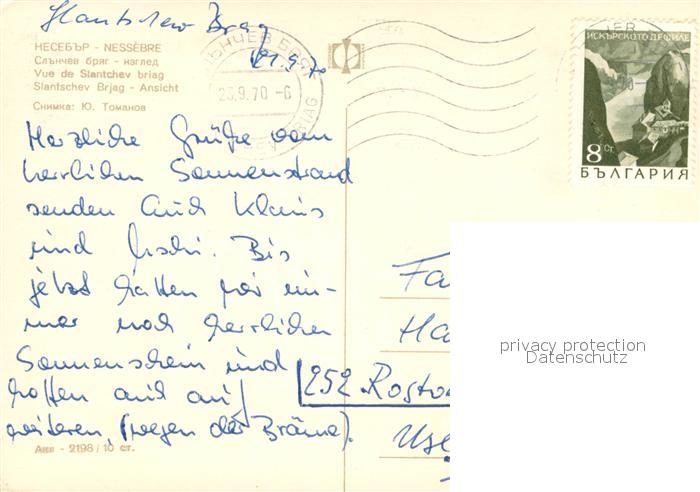 Slantschew Brjag
21.9.70
НЕСЕБЪР - NESSÈBRE
Слънчев бряг - изглед
Vue de Slantchev briag
Slantschev Brjag - Ansicht
Снимка: Ю. Томанов
СЛЪНЧЕВ БРЯГ
23.9.70-6
BRIAG
ИСКЪРСКОТО ДЕФИЛЕ
8 Ст.
БЪЛГАРИЯ
Herzliche Grüße vom
herrlichen Sonnenstrand
senden Euch Klaus
und
Bis
jetzt hatten wir im-
mer noch herrlichen
Sonnenschein und
hoffen auch auf
weiteren, (wegen der Bräune).
Fa
Ha
252 Rosto
Use
privacy protection
Datenschutz
Акв - 2198/10 ст.